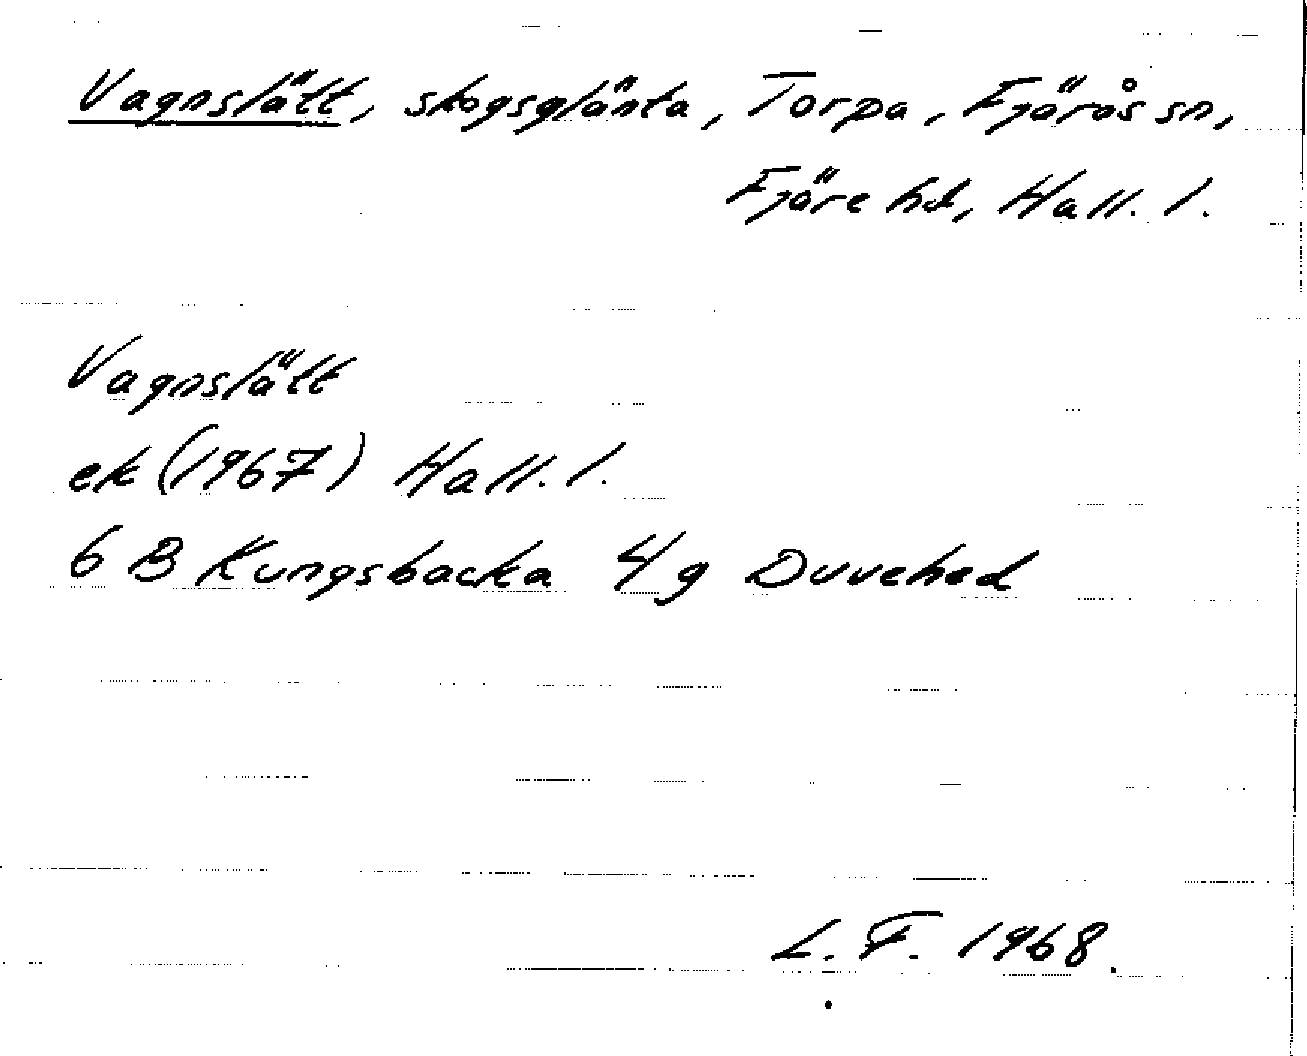 Vagnslätt, skogsglänta, Torpa, Fjärås sn,
Fjäre hd, Hall. l.
Vagnslätt
ek (1967) Hall. l.
6 B Kungsbacka 4g Duvehed
L. F. 1968.